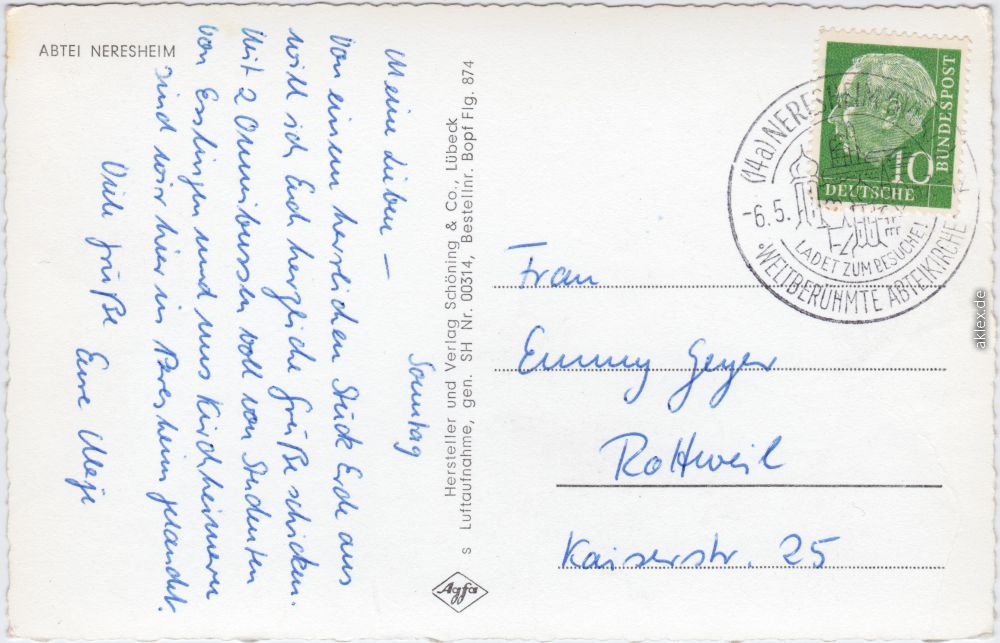 ABTEI NERESHEIM
Sonntag
Meine Lieben –
Von einem herrlichen Stück Erde aus
will ich Euch herzliche Grüße schicken.
Mit 2 Omnibussen voll von Studenten
von Esslingen und uns Kirchheimern
sind wir hier in Neresheim gelandet.
Viele Grüße Eure
Hersteller und Verlag Schöning & Co., Lübeck
s Luftaufnahme, gen. SH Nr. 00314, Bestellnr. Bopf Flg. 874
Agfa
10
DEUTSCHE
BUNDESPOST
(14a) NERESHEIM
-6.5.
LADET ZUM BESUCHE!
WELTBERÜHMTE ABTEIKIRCHE
Frau
Emmy Geyer
Rottweil
Kaiserstr. 25
aklex.de